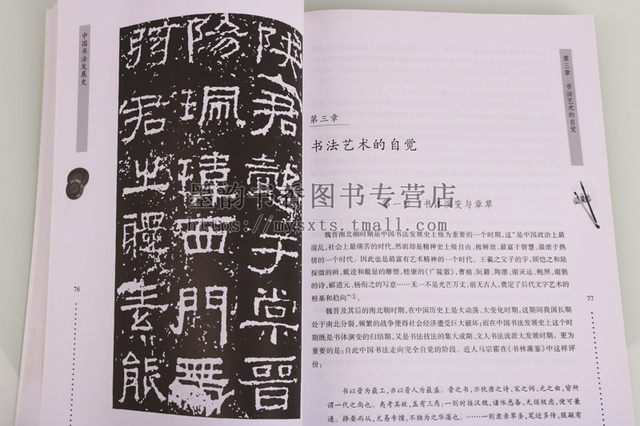 中国书法发展史
76
君
西門
君之 素能
第三章 书法艺术的自觉
77
第三章
书法艺术的自觉
第一 书体演变与章草
墨韵书香图书专营店
https://mysxts.tmall.com
魏晋南北朝时期是中国书法发展史上极为重要的一个时期,这“是中国政治上最
混乱,社会上最痛苦的时代,然而却是精神史上极自由、极解放,最富于智慧、最浓于热
情的一个时代。因此也是最富有艺术精神的一个时代。王羲之父子的字,顾恺之和陆
探微的画,戴逵和戴颙的雕塑,嵇康的《广陵散》,曹植、阮籍、陶潜、谢灵运、鲍照、谢朓
的诗,郦道元、杨衒之的写景……无一不是光芒万丈,前无古人,奠定了后代文学艺术的
根基和趋向”①。
魏晋及其后的南北朝时期,在中国历史上是大动荡、大变化时期,这期间我国长期
处于南北分裂,频繁的战争使得社会经济遭受巨大破坏;而在中国书法发展史上这个时
期既是书体演变的归结期,又是书法技法的集大成期、文人书法流派大发展时期。更为
重要的是:自此中国书法走向完全自觉的阶段。近人马宗霍在《书林藻鉴》中这样评
价:
书以晋为最工,亦以晋人为最盛。晋之书,亦犹唐之诗、宋之词、元之曲,皆所
谓一代之尚也。夷考其故,盖有三焉:一则时接汉魏,诸体悉备,无烦极虑,便可兼
通。择要而从,尤易专擅,不独为之华藻也。……一则承衰草圣,笔迹多传,服凝有